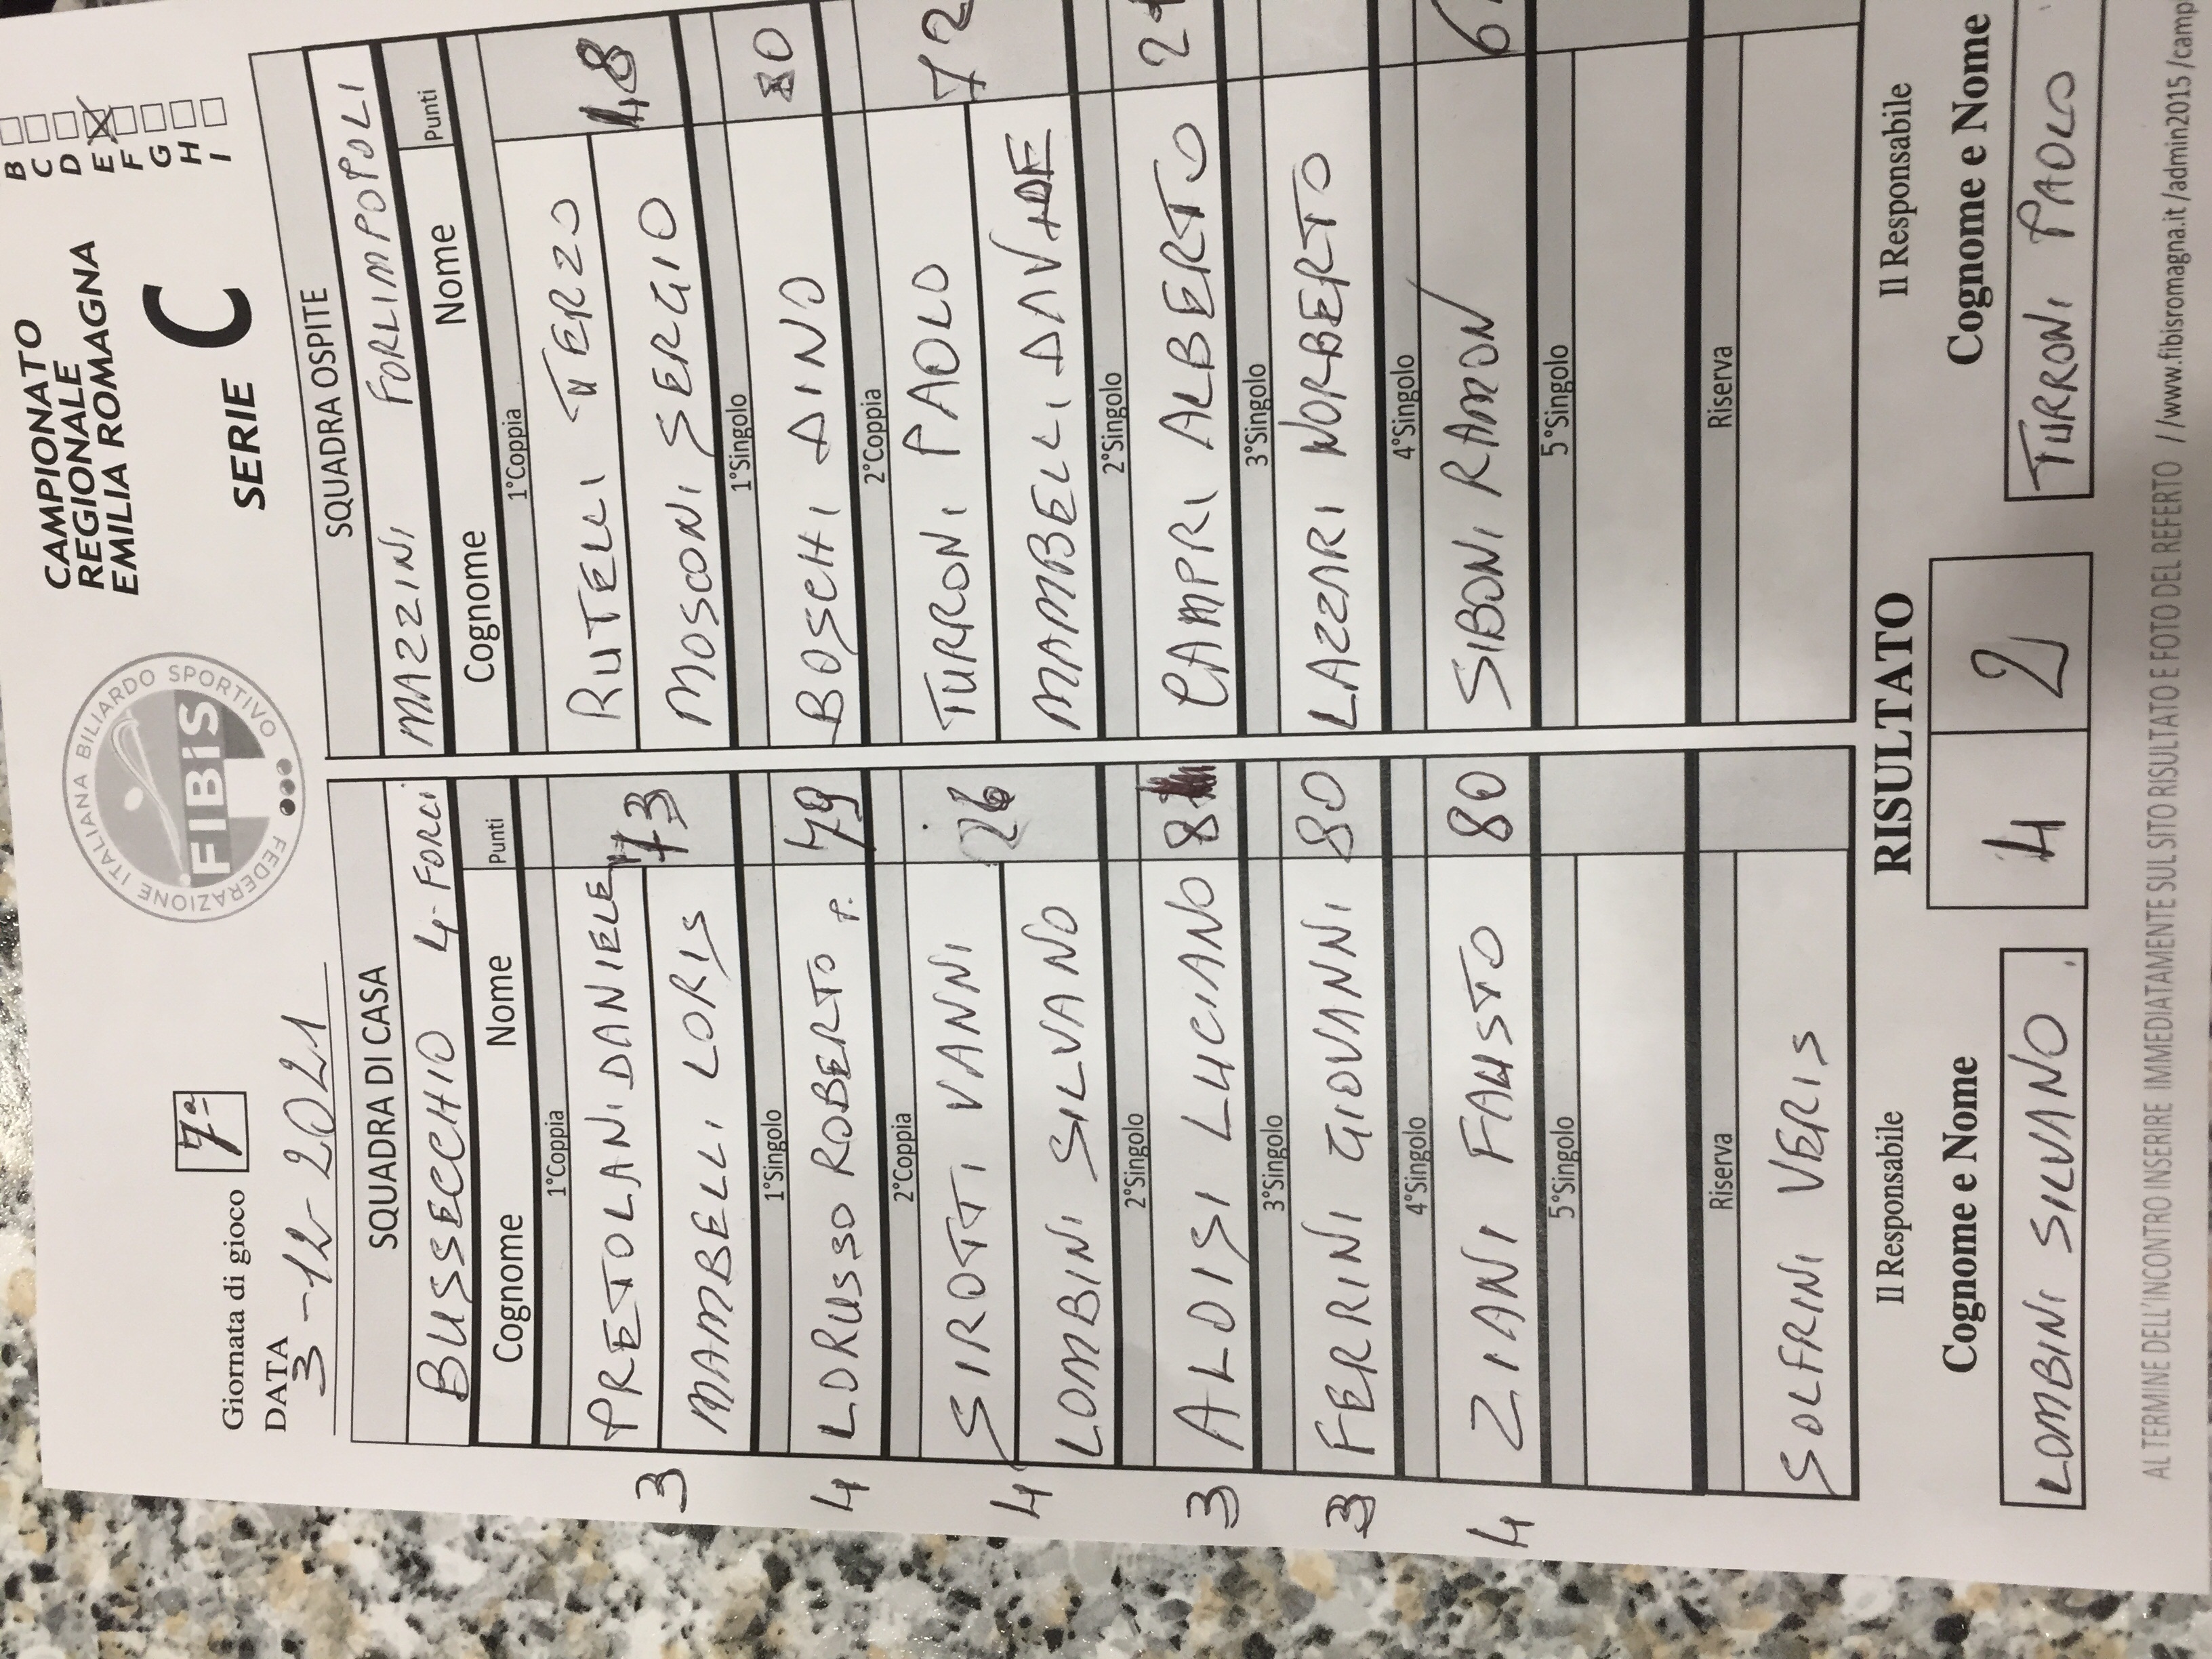 FEDERAZIONE ITALIANA BILIARDO SPORTIVO
FIBiS
CAMPIONATO
REGIONALE
EMILIA ROMAGNA
SERIE C
B
C
D
E
F
G
H
I
Giornata di gioco 7ª
DATA
3-12-2021
SQUADRA DI CASA
BUSSECCHIO 4-FORLI
Cognome Nome Punti
1°Coppia
PRETOLANI DANIELE
73
MAMBELLI LORIS
3
1°Singolo
LORUSSO ROBERTO P. 79
4
2°Coppia
SIROTTI VANNI
26
LOMBINI SILVANO
4
2°Singolo
ALDISI LUCIANO 8
3
3°Singolo
FERRINI GIOVANNI 80
3
4°Singolo
ZIANI FAUSTO 80
4
5°Singolo
Riserva
SOLFRINI VERIS
SQUADRA OSPITE
MAZZINI FORLIMPOPOLI
Cognome Nome Punti
1°Coppia
RUTELLI TERZO
48
MOSCONI SERGIO
1°Singolo
BOSCHI DINO 80
2°Coppia
TURRONI PAOLO
72
MAMBELLI DAVIDE
2°Singolo
CAMPRI ALBERTO
3°Singolo
LAZZARI NORBERTO
4°Singolo
SIBONI RAMON
5°Singolo
Riserva
Il Responsabile
Cognome e Nome
LOMBINI SILVANO
RISULTATO
4 2
Il Responsabile
Cognome e Nome
TURRONI PAOLO
AL TERMINE DELL'INCONTRO INSERIRE IMMEDIATAMENTE SUL SITO RISULTATO E FOTO DEL REFERTO //www.fibisromagna.it/admin2015/camp